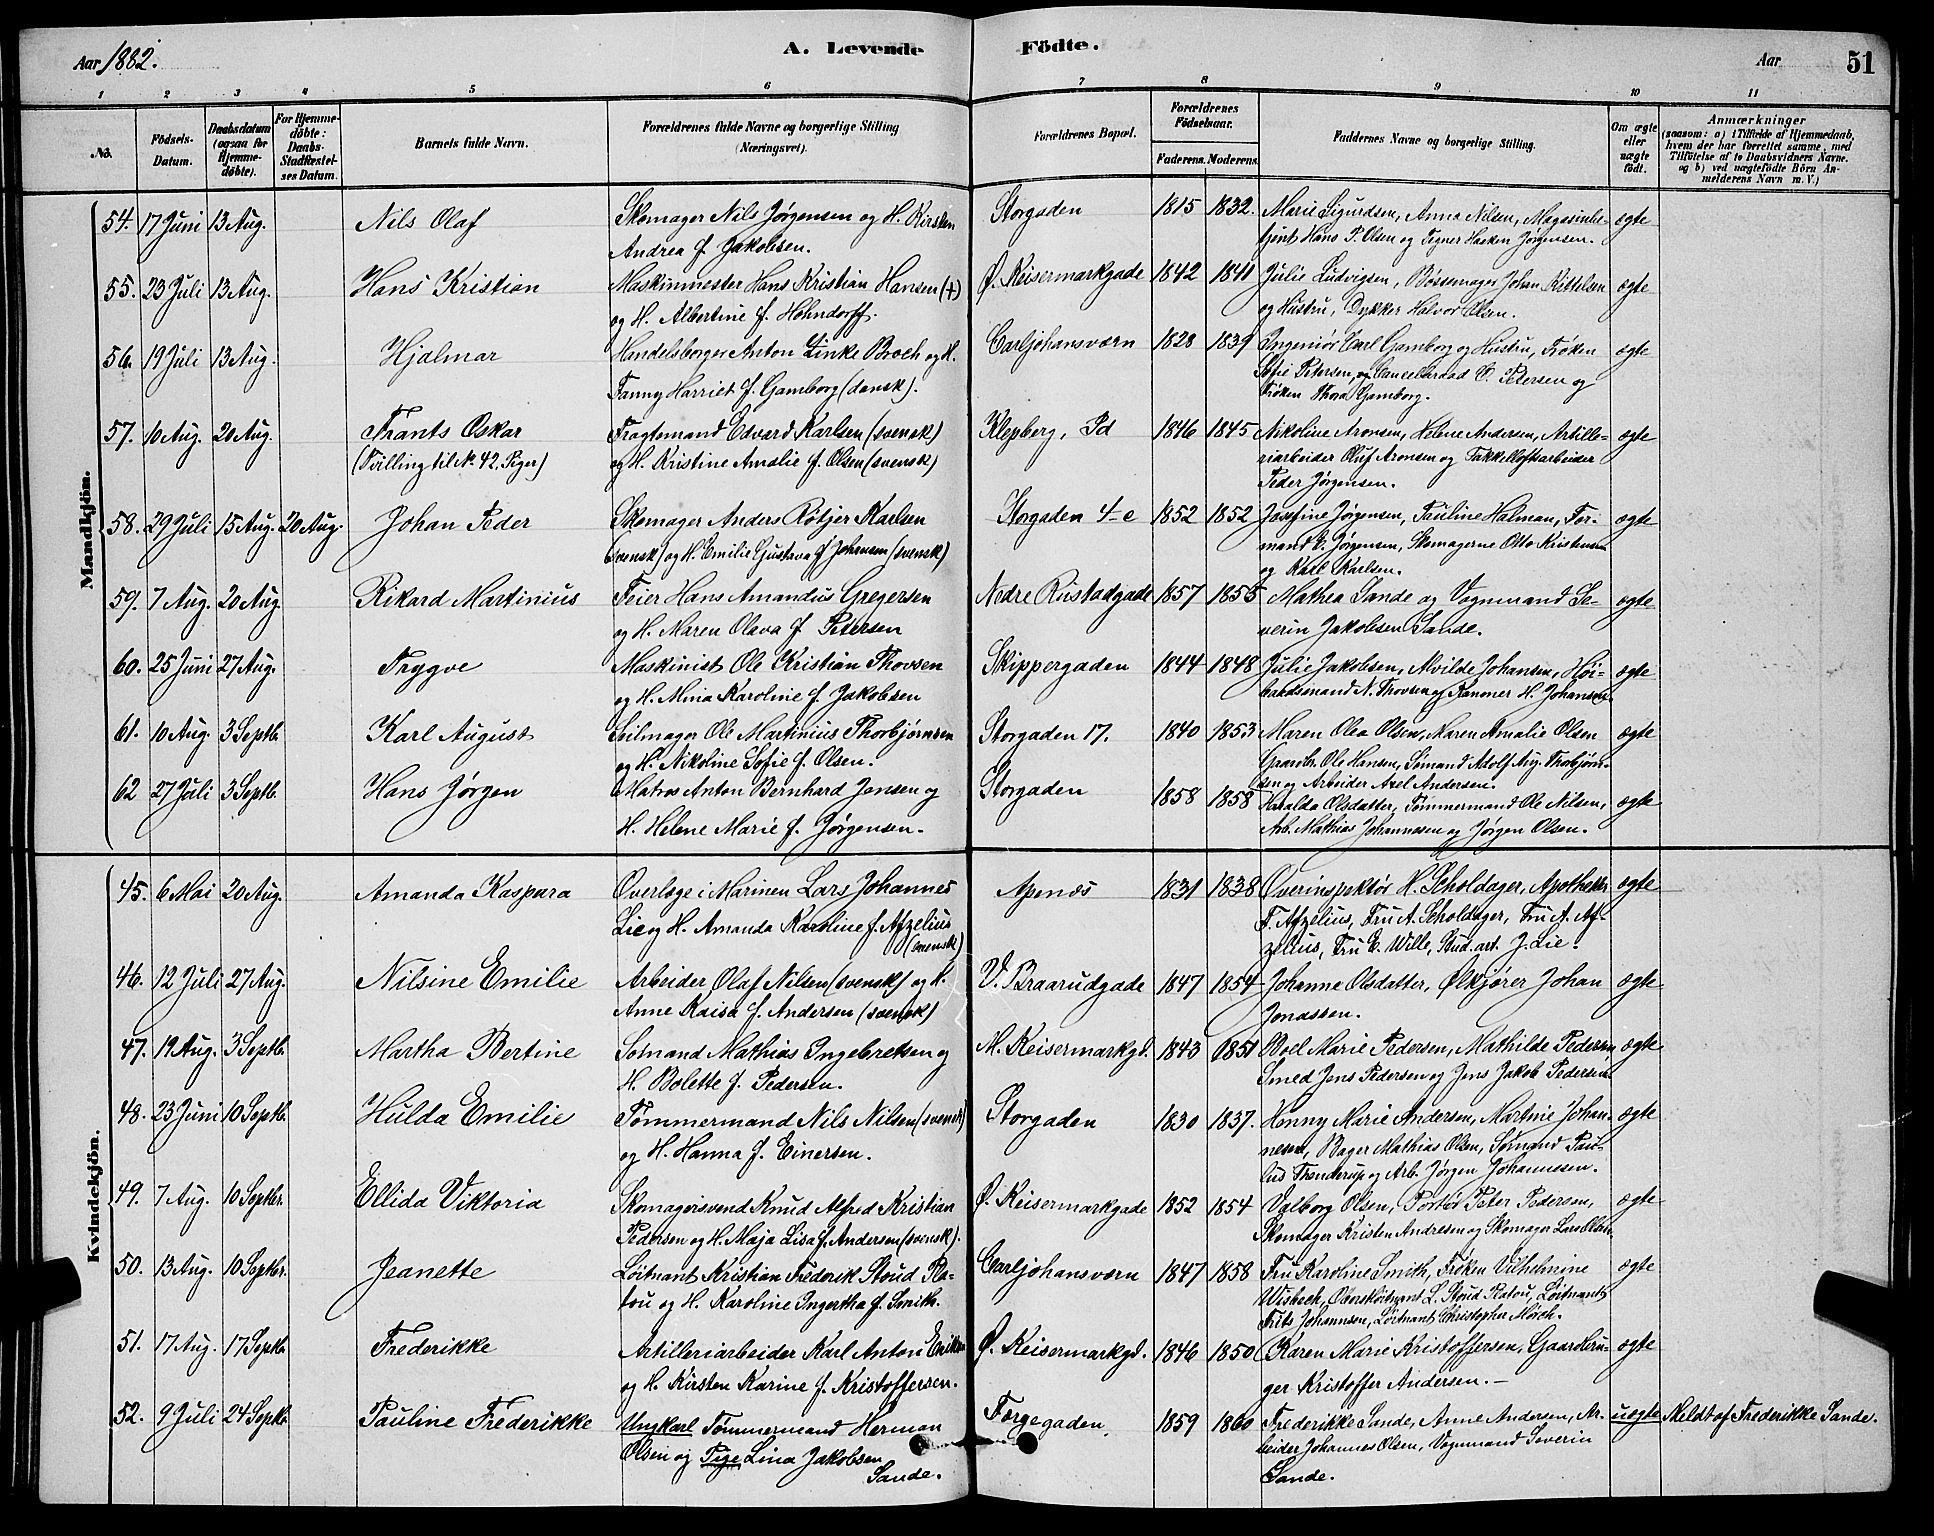 Aar 1882.
A. Levende Födte.
Aar 51
1 2 3 4 5 6 7 8 9 10 11
No.
Födsels-Datum.
Daabsdatum (ogsaa for Hjemme-döbte).
For Hjemme-döbte: Daabs-Stadfæstel-ses Datum.
Barnets fulde Navn.
Forældrenes fulde Navne og borgerlige Stilling (Næringsvei).
Forældrenes Bopæl.
Forældrenes Födselsaar.
Faderens. Moderens.
Faddernes Navne og borgerlige Stilling.
Om ægte eller uægte födt.
Anmærkninger (saasom: a) i Tilfælde af Hjemmedaab, hvem der har forrettet samme, med Tilföielse af to Daabsvidners Navne. og b) ved uægtefödte Börn Anmelderens Navn m. V.)
Mandkjön.
54. 17 Juni 13 Aug. Nils Olaf Skomager Nils Jørgensen og H. Kirsten Storgaden 1815 1832. Marie Sigurdsen, Anna Nilsen, Magasinbe- ægte
Andrea f. Jakobsen. tjent Hans P. Olsen og Tegner Haaken Jørgensen.
55. 23 Juli 13 Aug. Hans Kristian Maskinmester Hans Kristian Hansen (+) Ø. Keisermarkgade 1842 1841 Julie Ludvigsen, Bøssemager Johan Kittelsen ægte
og H. Albertine f. Hohndorff. og Hustru, Dykker Halvor Olsen.
56. 19 Juli 13 Aug. Hjalmar Handelsborger Anton Zinke Broch og H. Carljohansværn 1828 1839 Ingeniør Carl Gamborg og Hustru, Frøken ægte
Fanny Harriet f. Gamborg (dansk). Sofie Petersen, og Cancelliraad C. Petersen og
Frøken Thora Gamborg.
57. 10 Aug. 20 Aug. Frants Oskar Fragtemand Edvard Karlsen (svensk) Klepberg, Id 1846 1845 Nikoline Aronsen, Helene Andersen, Artille- ægte
(Tvilling til No. 42. Piger) og H. Kristine Amalie f. Olsen (svensk) riarbeider Oluf Aronsen og Takkelloftsarbeider
Peder Jørgensen.
58. 29 Juli 15 Aug. 20 Aug. Johan Peder Skomager Anders Rötjer Karlsen Storgaden 4-e 1852 1852 Josefine Jørgensen, Pauline Halman, For- ægte
(svensk) og H. Emilie Gustava f. Johansen (svensk) mand E. Jørgensen, Skomagerne Otto Kristensen
og Karl Karlsen.
59. 7 Aug. 20 Aug. Rikard Martinius Feier Hans Amandus Gregersen Nedre Rustadgade 1857 1855 Mathea Sande og Vognmand Se- ægte
og H. Maren Olava f. Petersen verin Jakobsen Sande.
60. 25 Juni 27 Aug. Trygve Maskinist Ole Kristian Thovsen Skippergaden 1844 1848 Julie Jakobsen, Alvilde Johansen, Høi- ægte
og H. Mina Karoline f. Jakobsen baadsmand N. Thovsen og Kanoner H. Johansen.
61. 10 Aug. 3 Septb. Karl August Seilmager Ole Martinius Thorbjørnsen Storgaden 17. 1840 1853 Maren Olea Olsen, Maren Amalie Olsen ægte
og H. Nikoline Sofie f. Olsen. Gaardbr. Ole Hansen, Sømand Adolf Aug. Thorbjørn-
sen og Arbeider Axel Andersen.
62 27 Juli 3 Septb. Hans Jørgen Matros Anton Bernhard Jensen og Storgaden 1858 1858 Haralda Olsdatter, Tømmermand Ole Nilsen, ægte
H. Helene Marie f. Jørgensen. Arb. Mathias Johannesen og Jørgen Olsen.
Kvindekjön.
45. 6 Mai 20 Aug. Amanda Kaspara Overlæge i Marinen Lars Johannes Apenæs 1831 1838 Overinspektør H. Scholdager, Apotheker ægte
Lie og H. Amanda Karoline f. Afzelius F. Afzelius, Fru A. Scholdager, Fru A. Af-
(svensk) zelius, Fru E. Wille, Stud. art. J. Lie.
46. 12 Juli 27 Aug. Nilsine Emilie Arbeider Olaf Nilsen (svensk) og H. V. Braarudgade 1847 1854 Johanne Olsdatter, Ølkjører Johan ægte
Anne Kaisa f. Andersen (svensk) Jonassen.
47. 19 Aug. 3 Septb. Martha Bertine Sømand Mathias Ingebretsen og M. Keisermarkgd. 1843 1851 Boel Marie Pedersen, Mathilde Pedersen ægte
H. Bolette f. Pedersen. Smed Jens Pedersen og Jens Jakob Pedersen
48. 23 Juni 10 Septb. Hulda Emilie Tømmermand Nils Nilsen (svensk) Storgaden 1830 1837. Henny Marie Andersen, Martine Johan- ægte
og H. Hanna f. Einersen. nesen, Bager Mathias Olsen, Sømand Pau-
lus Trenderup og Arb. Jørgen Johannesen.
49. 7 Aug. 10 Septbr. Ellida Viktoria Skomagersvend Knud Alfred Kristian Ø. Keisermarkgade 1852 1854 Valborg Olsen, Portør Peter Pedersen, ægte
Pedersen og H. Maja Lisa f. Andersen (svensk). Skomager Kristen Andresen og Skomager Lars Olsen.
50. 13 Aug. 10 Septbr. Jeanette Løitnant Kristian Frederik Stoud Pla- Carljohansværn 1847 1858 Fru Karoline Smith, Frøken Vilhelmine ægte
tou og H. Karoline Ingertha f. Smith. Wisbech, Oberstløitnant L. Stoud Platou, Løitnant
Frits Johannsen, Løitnant Christopher Mörch.
51. 17 Aug. 17 Septb. Frederikke Artilleriarbeider Karl Anton Eriksen Ø. Keisermarkgd. 1846 1850 Karen Marie Kristoffersen, Gaardbru- ægte
og H. Kirsten Karine f. Kristoffersen. ger Kristoffer Andersen.
52. 9 Juli 24 Septb. Pauline Frederikke Ungkarl Tømmermand Herman Torgegaden. 1859 1860 Frederikke Sande, Anne Andersen, Ar- uægte Meldt af Frederikke Sande.
Olsen og Pige Lina Jakobsen beider Johannes Olsen, Vognmand Severin
Sande. Sande.